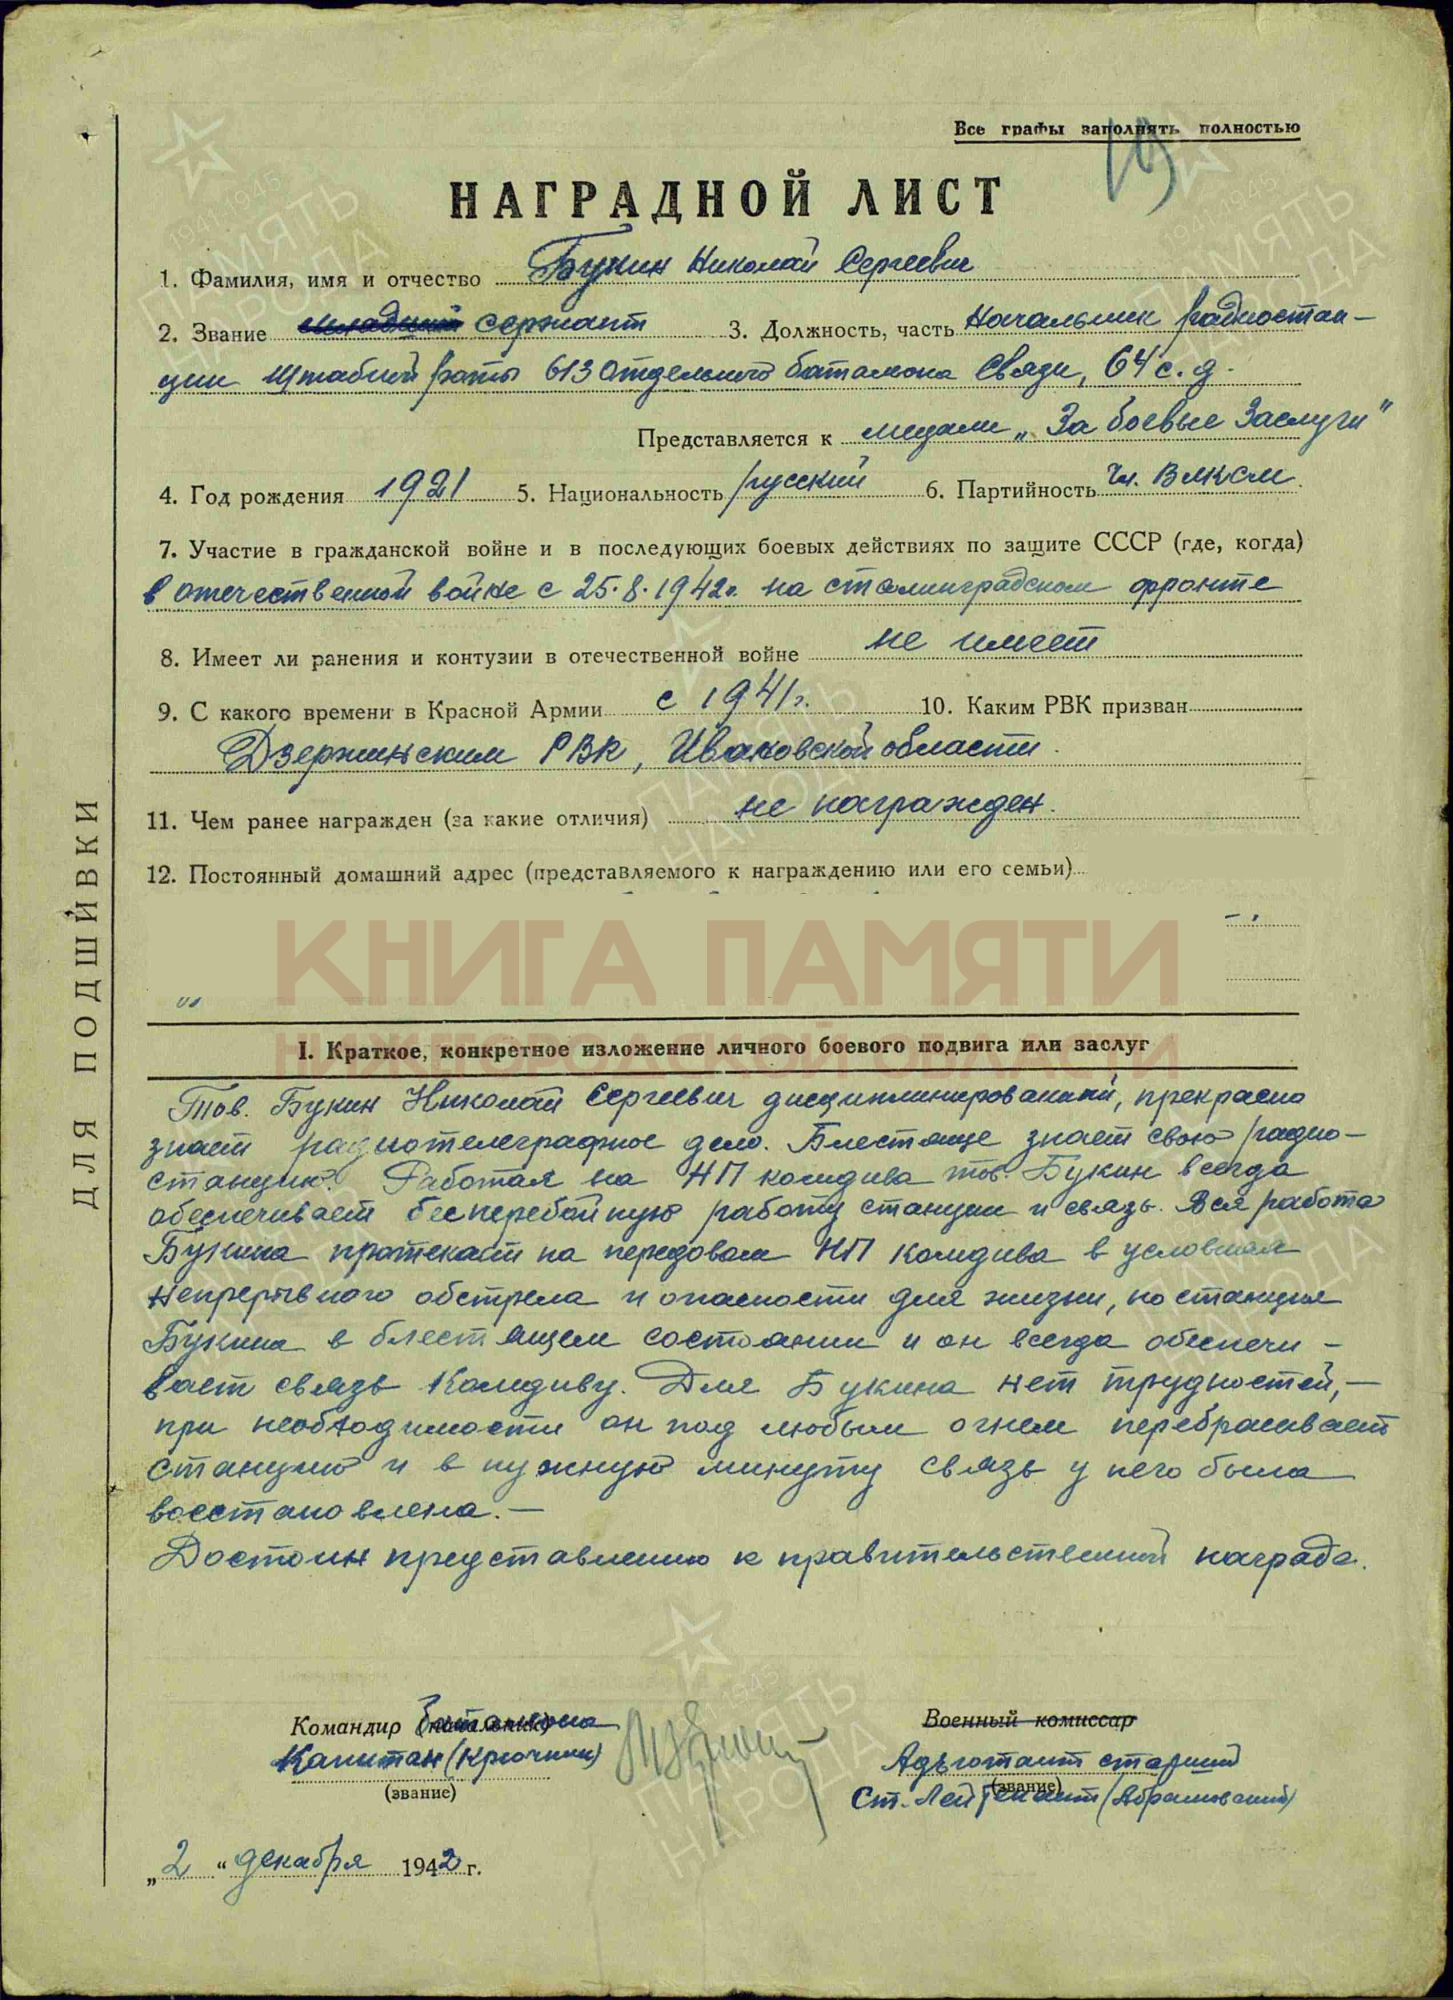 Все графы заполнять полностью
19
НАГРАДНОЙ ЛИСТ
1. Фамилия, имя и отчество Букин Николай Сергеевич
2. Звание младший сержант 3. Должность, часть Начальник радиостан-
ции Штабной роты 613 Отдельного батальона Связи, 64 с. д.
Представляется к медали „За боевые Заслуги"
4. Год рождения 1921 5. Национальность русский 6. Партийность Чл. ВЛКСМ.
7. Участие в гражданской войне и в последующих боевых действиях по защите СССР (где, когда)
в отечественной войне с 25.8.1942г. на сталинградском фронте
8. Имеет ли ранения и контузии в отечественной войне не имеет
9. С какого времени в Красной Армии с 1941г. 10. Каким РВК призван
Дзержинским РВК, Ивановской области.
11. Чем ранее награжден (за какие отличия) не награжден.
12. Постоянный домашний адрес (представляемого к награждению или его семьи)
КНИГА ПАМЯТИ
НИЖЕГОРОДСКОЙ ОБЛАСТИ
I. Краткое, конкретное изложение личного боевого подвига или заслуг
Тов. Букин Николай Сергеевич дисциплинированный, прекрасно
знает радиотелеграфное дело. Блестяще знает свою радио-
станцию. Работая на НП комдива тов. Букин всегда
обеспечивает бесперебойную работу станции и связь. Вся работа
Букина протекает на передовом НП комдива в условиях
непрерывного обстрела и опасности для жизни, но станция
Букина в блестящем состоянии и он всегда обеспечи-
вает связь Комдиву. Для Букина нет трудностей,-
при необходимости он под любым огнем перебрасывает
станцию и в нужную минуту связь у него была
восстановлена.-
Достоин представлению к правительственной награде.
Командир (начальник) батальона
Капитан (Крючкин)
(звание)
Военный комиссар
Адъютант старший
(звание)
Ст. Лейтенант (Абрамовский)
„2" декабря 1942 г.
ДЛЯ ПОДШИВКИ
ПАМЯТЬ НАРОДА
1941-1945